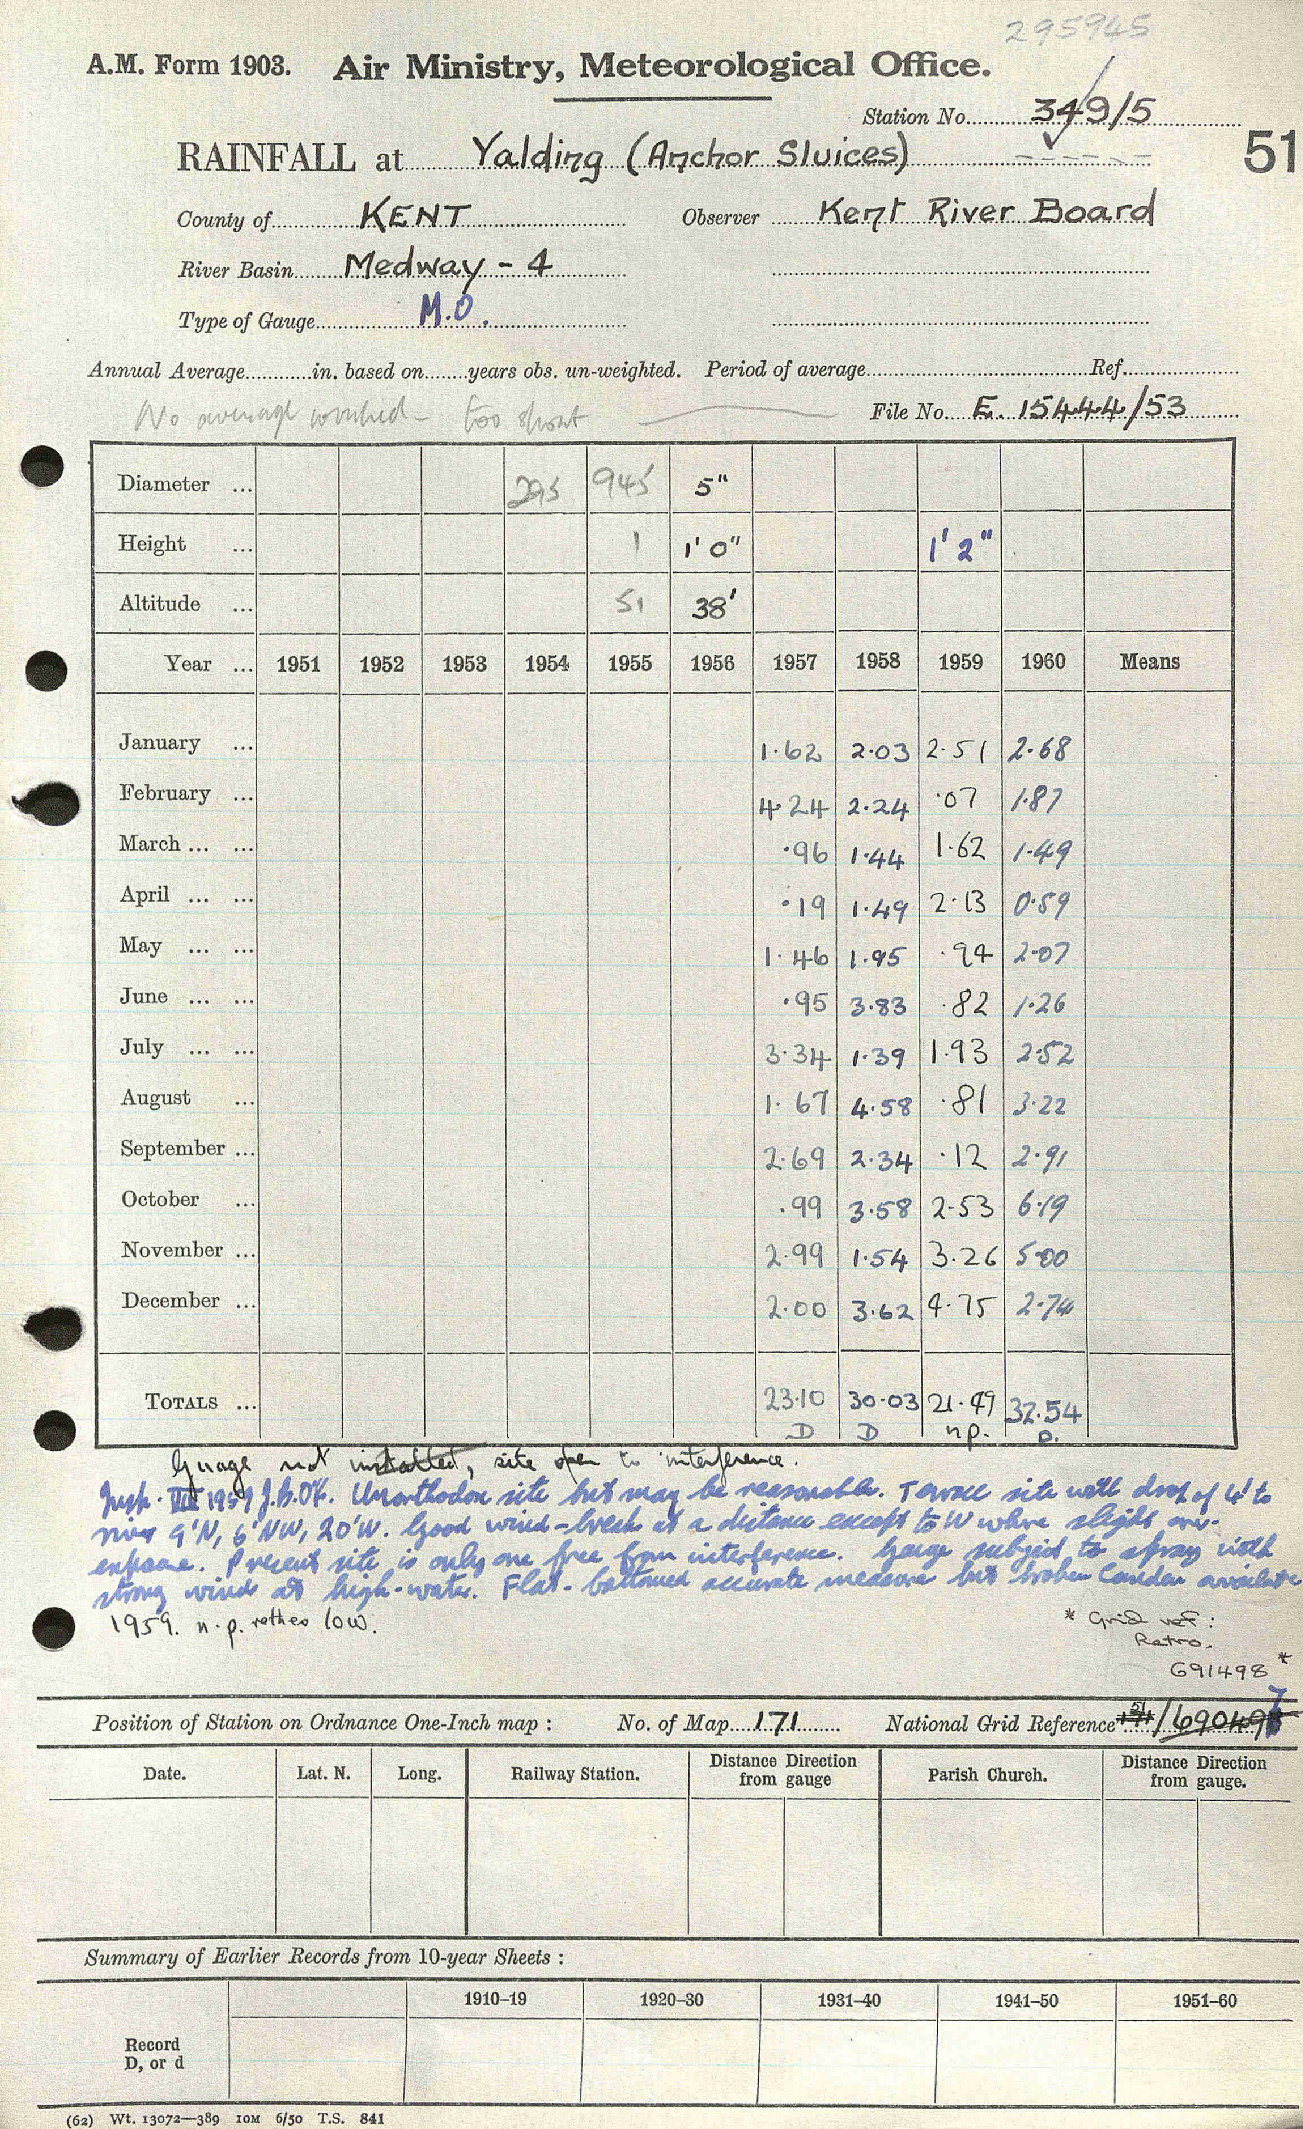 295945
A.M. Form 1903. Air Ministry, Meteorological Office.
Station No. 349/5
RAINFALL at Yalding (Anchor Sluices) 51
County of KENT Observer Kent River Board
River Basin Medway - 4
Type of Gauge M.O.
Annual Average in. based on years obs. un-weighted. Period of average Ref.
No average worked too short File No. E. 15444/53
Diameter ... 295 945 5"
Height ... 1 1' 0" 1' 2"
Altitude ... 51 38'
Year ... 1951 1952 1953 1954 1955 1956 1957 1958 1959 1960 Means
January ... 1.62 2.03 2.51 2.68
February ... 4.24 2.24 .07 1.87
March ... ... .96 1.44 1.62 1.49
April ... ... .19 1.49 2.13 0.59
May ... ... 1.46 1.95 .94 2.07
June ... ... .95 3.83 .82 1.26
July ... ... 3.34 1.39 1.93 2.52
August ... 1.67 4.58 .81 3.22
September ... 2.69 2.34 .12 2.91
October ... .99 3.58 2.53 6.19
November ... 2.99 1.54 3.26 5.00
December ... 2.00 3.62 4.75 2.74
TOTALS ... 23.10 30.03 21.49 32.54
D D n.p. D.
Guage not installed, site open to interference.
Insp. III 1959 Unorthodox site but may be reasonable. Terrace site with drop of 4' to
river 9'N, 6'NW, 20'W. Good wind-break at a distance except to W where slight over-
exposure. Present site is only one free from interference. Gauge subject to spray with
strong winds at high-water. Flat-bottomed accurate measure but broken Camden available
1959. n.p. rather low.
* Grid ref:
Retro.
691498 *
Position of Station on Ordnance One-Inch map : No. of Map 171 National Grid Reference 51/690497
Date. Lat. N. Long. Railway Station. Distance from gauge Direction Parish Church. Distance from gauge. Direction
Summary of Earlier Records from 10-year Sheets :
1910–19 1920–30 1931–40 1941–50 1951–60
Record
D, or d
(62) Wt. 13072—389 10M 6/50 T.S. 841